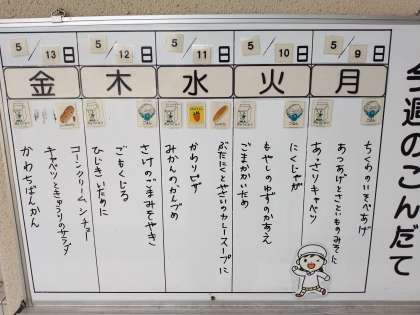 今週のこんだて
5/9日
月
ごはん
ちくわのいそべあげ
あつあげとさといものみそに
あっさりキャベツ
5/10日
火
ごはん
にくじゃが
もやしのゆずのかあえ
ごまかかいため
5/11日
水
かわりピザ
ぶたにくとやさいのカレースープに
みかんのかんづめ
5/12日
木
ごはん
さけのごまみそやき
ごもくじる
ひじきいために
5/13日
金
コーンクリームシチュー
キャベツときゅうりのサラダ
かわちばんかん